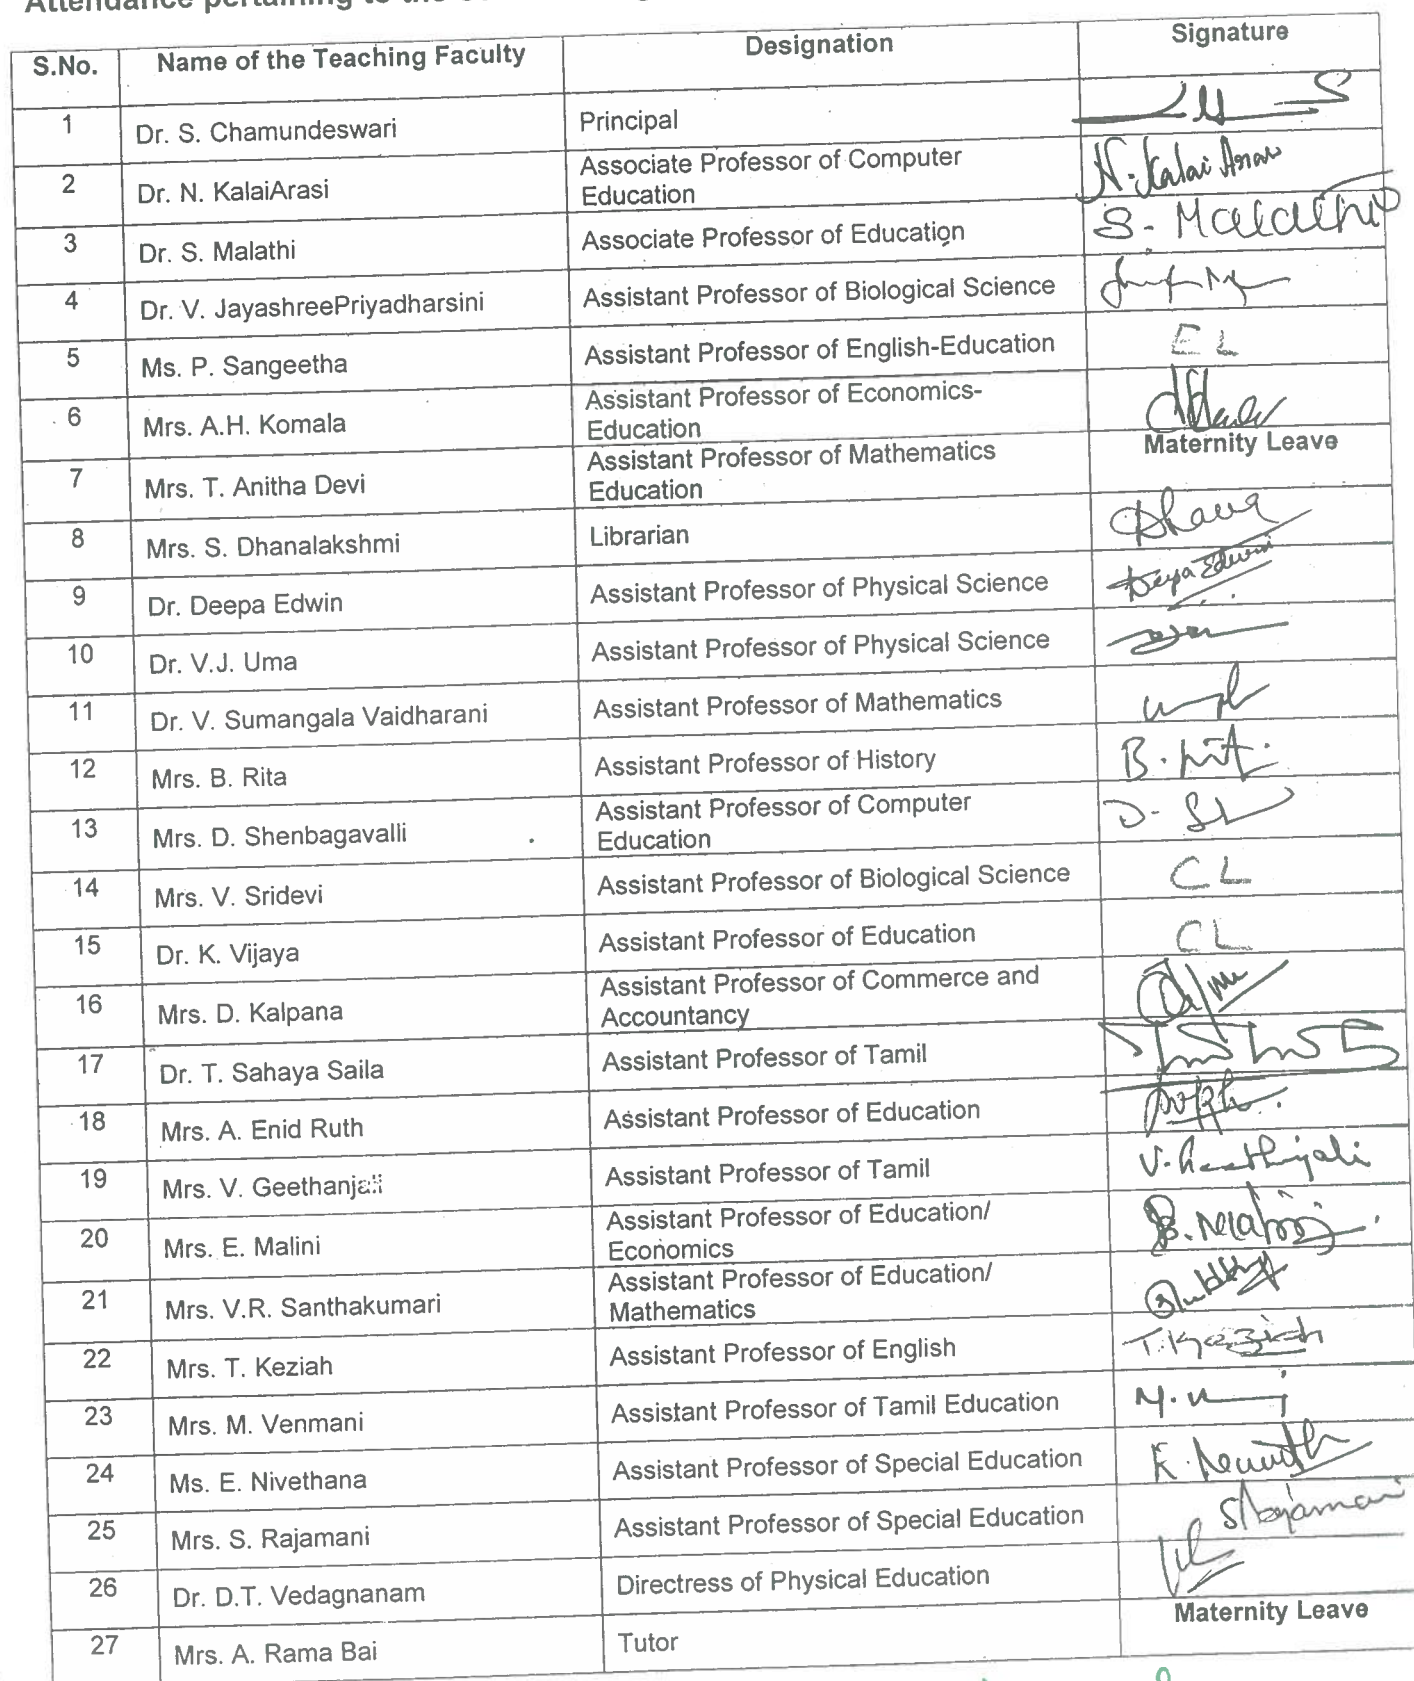 S.No. Name of the Teaching Faculty Designation Signature
1 Dr. S. Chamundeswari Principal
2 Dr. N. KalaiArasi Associate Professor of Computer
Education N. Kalai Arasi
3 Dr. S. Malathi Associate Professor of Education S. Malathi
4 Dr. V. JayashreePriyadharsini Assistant Professor of Biological Science
5 Ms. P. Sangeetha Assistant Professor of English-Education EL
6 Mrs. A.H. Komala Assistant Professor of Economics-
Education
7 Mrs. T. Anitha Devi Assistant Professor of Mathematics
Education Maternity Leave
8 Mrs. S. Dhanalakshmi Librarian
9 Dr. Deepa Edwin Assistant Professor of Physical Science Deepa Edwin
10 Dr. V.J. Uma Assistant Professor of Physical Science
11 Dr. V. Sumangala Vaidharani Assistant Professor of Mathematics
12 Mrs. B. Rita Assistant Professor of History
13 Mrs. D. Shenbagavalli Assistant Professor of Computer
Education
14 Mrs. V. Sridevi Assistant Professor of Biological Science CL
15 Dr. K. Vijaya Assistant Professor of Education CL
16 Mrs. D. Kalpana Assistant Professor of Commerce and
Accountancy
17 Dr. T. Sahaya Saila Assistant Professor of Tamil
18 Mrs. A. Enid Ruth Assistant Professor of Education
19 Mrs. V. Geethanjali Assistant Professor of Tamil
20 Mrs. E. Malini Assistant Professor of Education/
Economics
21 Mrs. V.R. Santhakumari Assistant Professor of Education/
Mathematics
22 Mrs. T. Keziah Assistant Professor of English T. Keziah
23 Mrs. M. Venmani Assistant Professor of Tamil Education
24 Ms. E. Nivethana Assistant Professor of Special Education
25 Mrs. S. Rajamani Assistant Professor of Special Education S Rajamani
26 Dr. D.T. Vedagnanam Directress of Physical Education
27 Mrs. A. Rama Bai Tutor Maternity Leave